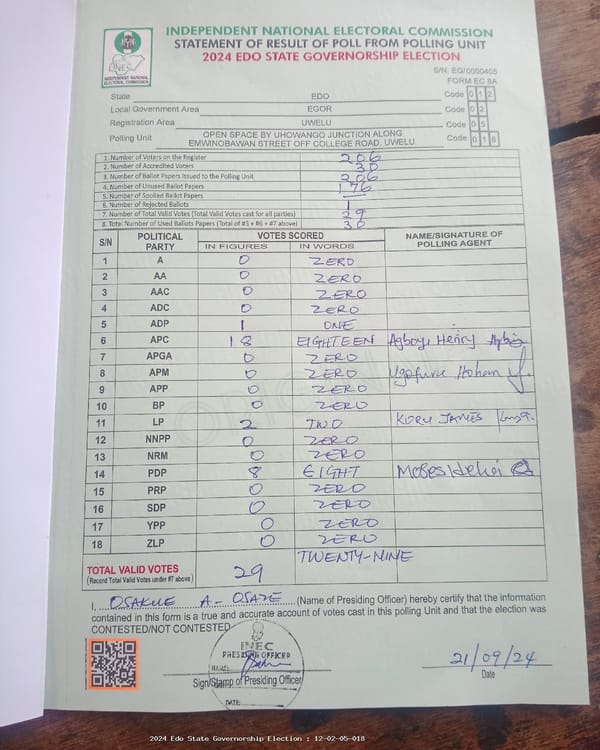 INDEPENDENT NATIONAL ELECTORAL COMMISSION
STATEMENT OF RESULT OF POLL FROM POLLING UNIT
2024 EDO STATE GOVERNORSHIP ELECTION
INEC
INDEPENDENT NATIONAL
ELECTORAL COMMISSION
S/N: EG/0000405
FORM EC 8A
State EDO Code 0 1 2
Local Government Area EGOR Code 0 2
Registration Area UWELU Code 0 5
Polling Unit OPEN SPACE BY UHOWANGO JUNCTION ALONG EMWINOBAWAN STREET OFF COLLEGE ROAD, UWELU. Code 0 1 8
1. Number of Voters on the Register 206
2. Number of Accredited Voters 30
3. Number of Ballot Papers Issued to the Polling Unit 206
4. Number of Unused Ballot Papers 176
5. Number of Spoiled Ballot Papers —
6. Number of Rejected Ballots 1
7. Number of Total Valid Votes (Total Valid Votes cast for all parties) 29
8. Total Number of Used Ballots Papers (Total of #5 + #6 + #7 above) 30
S/N POLITICAL PARTY VOTES SCORED NAME/SIGNATURE OF POLLING AGENT
IN FIGURES IN WORDS
1 A 0 ZERO
2 AA 0 ZERO
3 AAC 0 ZERO
4 ADC 0 ZERO
5 ADP 1 ONE
6 APC 18 EIGHTEEN Henry
7 APGA 0 ZERO
8 APM 0 ZERO
9 APP 0 ZERO
10 BP 0 ZERO
11 LP 2 TWO JAMES
12 NNPP 0 ZERO
13 NRM 0 ZERO
14 PDP 8 EIGHT Moses
15 PRP 0 ZERO
16 SDP 0 ZERO
17 YPP 0 ZERO
18 ZLP 0 ZERO
TOTAL VALID VOTES 29 TWENTY-NINE
(Record Total Valid Votes under #7 above)
I, OSAKUE A- OSAZE (Name of Presiding Officer) hereby certify that the information
contained in this form is a true and accurate account of votes cast in this polling Unit and that the election was
CONTESTED/NOT CONTESTED.
INEC
PRESIDING OFFICER
NAME:
DATE:
Sign/Stamp of Presiding Officer
21/09/24
Date
2024 Edo State Governorship Election : 12-02-05-018